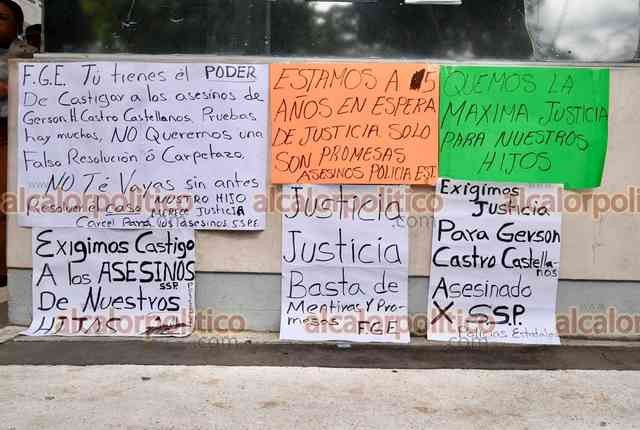 F.G.E. Tú tienes él PODER
De Castigar a los asesinos de
Gerson H Castro Castellanos, Pruebas
hay muchas, NO Queremos una
Falsa Resolución ó Carpetazo,
NO Té Vayas sin antes
Resolver el caso NUESTRO HIJO
MERECE JUSTICIA
Carcel Para los asesinos S.S.P.E
ESTAMOS A 5
AÑOS EN ESPERA
DE JUSTICIA SOLO
SON PROMESAS
ASESINOS POLICIA EST.
QUEMOS LA
MAXIMA JUSTICIA
PARA NUESTROS
HIJOS
Exigimos Castigo
A los ASESINOS
SSP
De Nuestros
HIJAS
Justicia
Justicia
Basta de
Mentiras Y Pro-
mesas FGE
Exigimos
Justicia
Para Gerson
Castro Castella-
nos
Asesinado
X SSP.
Policias Estatales
alcalorpolitico
.com
alcalorpolitico
.com
alcalorpolitico
.com
alcalorpolitico
.com